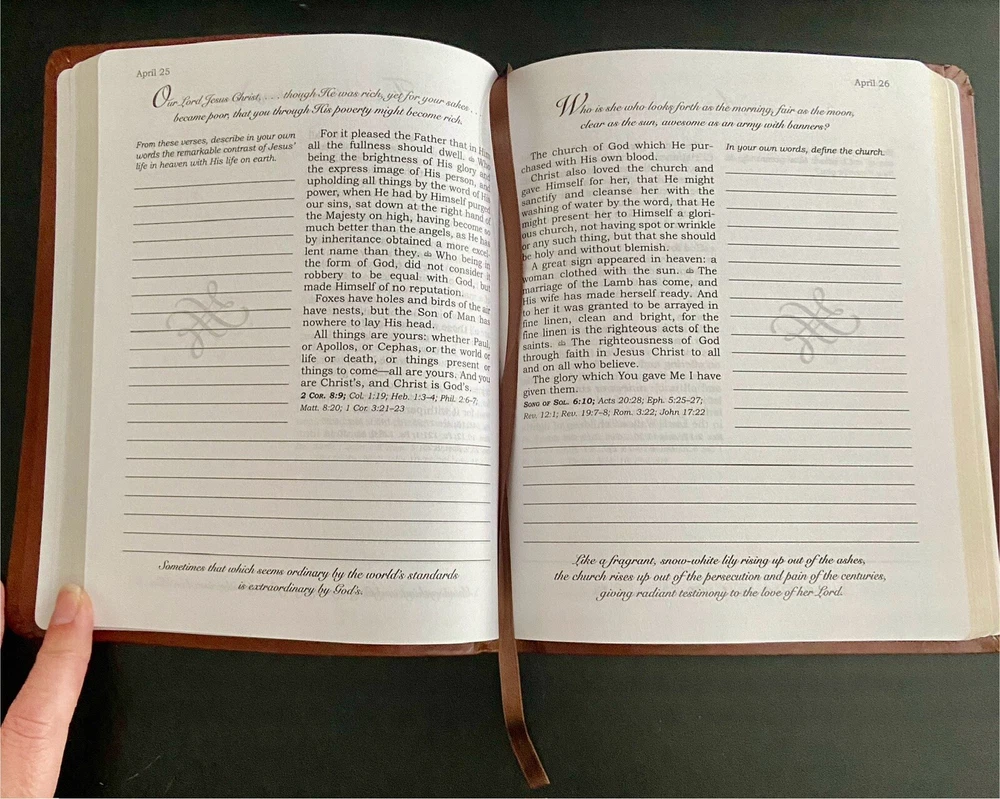 April 25
Our Lord Jesus Christ, . . . though He was rich, yet for your sakes . . .
became poor, that you through His poverty might become rich.
From these verses, describe in your own
words the remarkable contrast of Jesus'
life in heaven with His life on earth.
For it pleased the Father that in Him
all the fullness should dwell. Who
being the brightness of His glory and
the express image of His person, and
upholding all things by the word of His
power, when He had by Himself purged
our sins, sat down at the right hand of
the Majesty on high, having become so
much better than the angels, as He has
by inheritance obtained a more excel-
lent name than they. Who being in
the form of God, did not consider it
robbery to be equal with God, but
made Himself of no reputation.
Foxes have holes and birds of the air
have nests, but the Son of Man has
nowhere to lay His head.
All things are yours: whether Paul,
or Apollos, or Cephas, or the world or
life or death, or things present or
things to come—all are yours. And you
are Christ's, and Christ is God's.
2 Cor. 8:9; Col. 1:19; Heb. 1:3–4; Phil. 2:6–7;
Matt. 8:20; 1 Cor. 3:21–23
Sometimes that which seems ordinary by the world's standards
is extraordinary by God's.
April 26
Who is she who looks forth as the morning, fair as the moon,
clear as the sun, awesome as an army with banners?
The church of God which He pur-
chased with His own blood.
Christ also loved the church and
gave Himself for her, that He might
sanctify and cleanse her with the
washing of water by the word, that He
might present her to Himself a glori-
ous church, not having spot or wrinkle
or any such thing, but that she should
be holy and without blemish.
A great sign appeared in heaven: a
woman clothed with the sun. The
marriage of the Lamb has come, and
His wife has made herself ready. And
to her it was granted to be arrayed in
fine linen, clean and bright, for the
fine linen is the righteous acts of the
saints. The righteousness of God
through faith in Jesus Christ to all
and on all who believe.
The glory which You gave Me I have
given them.
Song of Sol. 6:10; Acts 20:28; Eph. 5:25–27;
Rev. 12:1; Rev. 19:7–8; Rom. 3:22; John 17:22
In your own words, define the church.
Like a fragrant, snow-white lily rising up out of the ashes,
the church rises up out of the persecution and pain of the centuries,
giving radiant testimony to the love of her Lord.